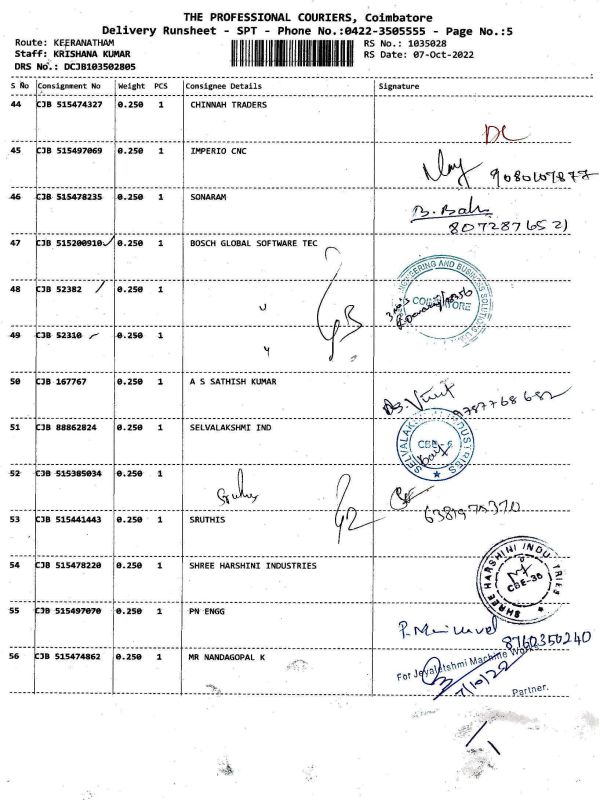 THE PROFESSIONAL COURIERS, Coimbatore
Delivery Runsheet - SPT - Phone No.:0422-3505555 - Page No.:5
Route: KEERANATHAM RS No.: 1035028
Staff: KRISHANA KUMAR RS Date: 07-Oct-2022
DRS No.: DCJB103502805
S No Consignment No Weight PCS Consignee Details Signature
44 CJB 515474327 0.250 1 CHINNAH TRADERS
DC
45 CJB 515497069 0.250 1 IMPERIO CNC
46 CJB 515478235 0.250 1 SONARAM
B. Balu
8072876521
47 CJB 515200910 0.250 1 BOSCH GLOBAL SOFTWARE TEC
ENGINEERING AND BUSINESS SOLUTIONS
48 CJB 52382 0.250 1
COIMBATORE
49 CJB 52310 0.250 1
50 CJB 167767 0.250 1 A S SATHISH KUMAR
9787768682
51 CJB 88862824 0.250 1 SELVALAKSHMI IND
SELVALAKSHMI INDUSTRIES
CBE-6
52 CJB 515385034 0.250 1
6381975370
53 CJB 515441443 0.250 1 SRUTHIS
54 CJB 515478220 0.250 1 SHREE HARSHINI INDUSTRIES
SHREE HARSHINI INDUSTRIES
CBE-36
55 CJB 515497070 0.250 1 PN ENGG
8760350240
56 CJB 515474862 0.250 1 MR NANDAGOPAL K
For Jeyalakshmi Machine Works
7/10/22
Partner.